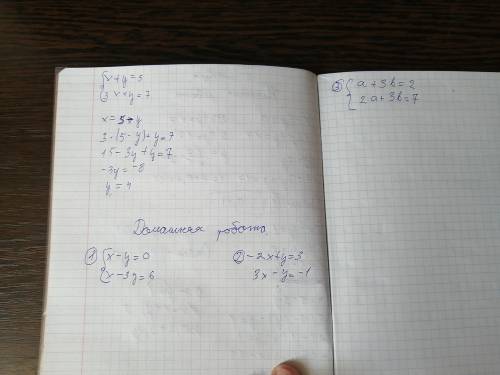 {x+y=5
3x+y=7
x=5-y
3·(5-y)+y=7
15-3y+y=7
-3y=-8
y=4
Домашняя работа
① {x-y=0
x-3y=6
② -2x+y=3
3x-y=-1
③ {a+3b=2
2a+3b=7